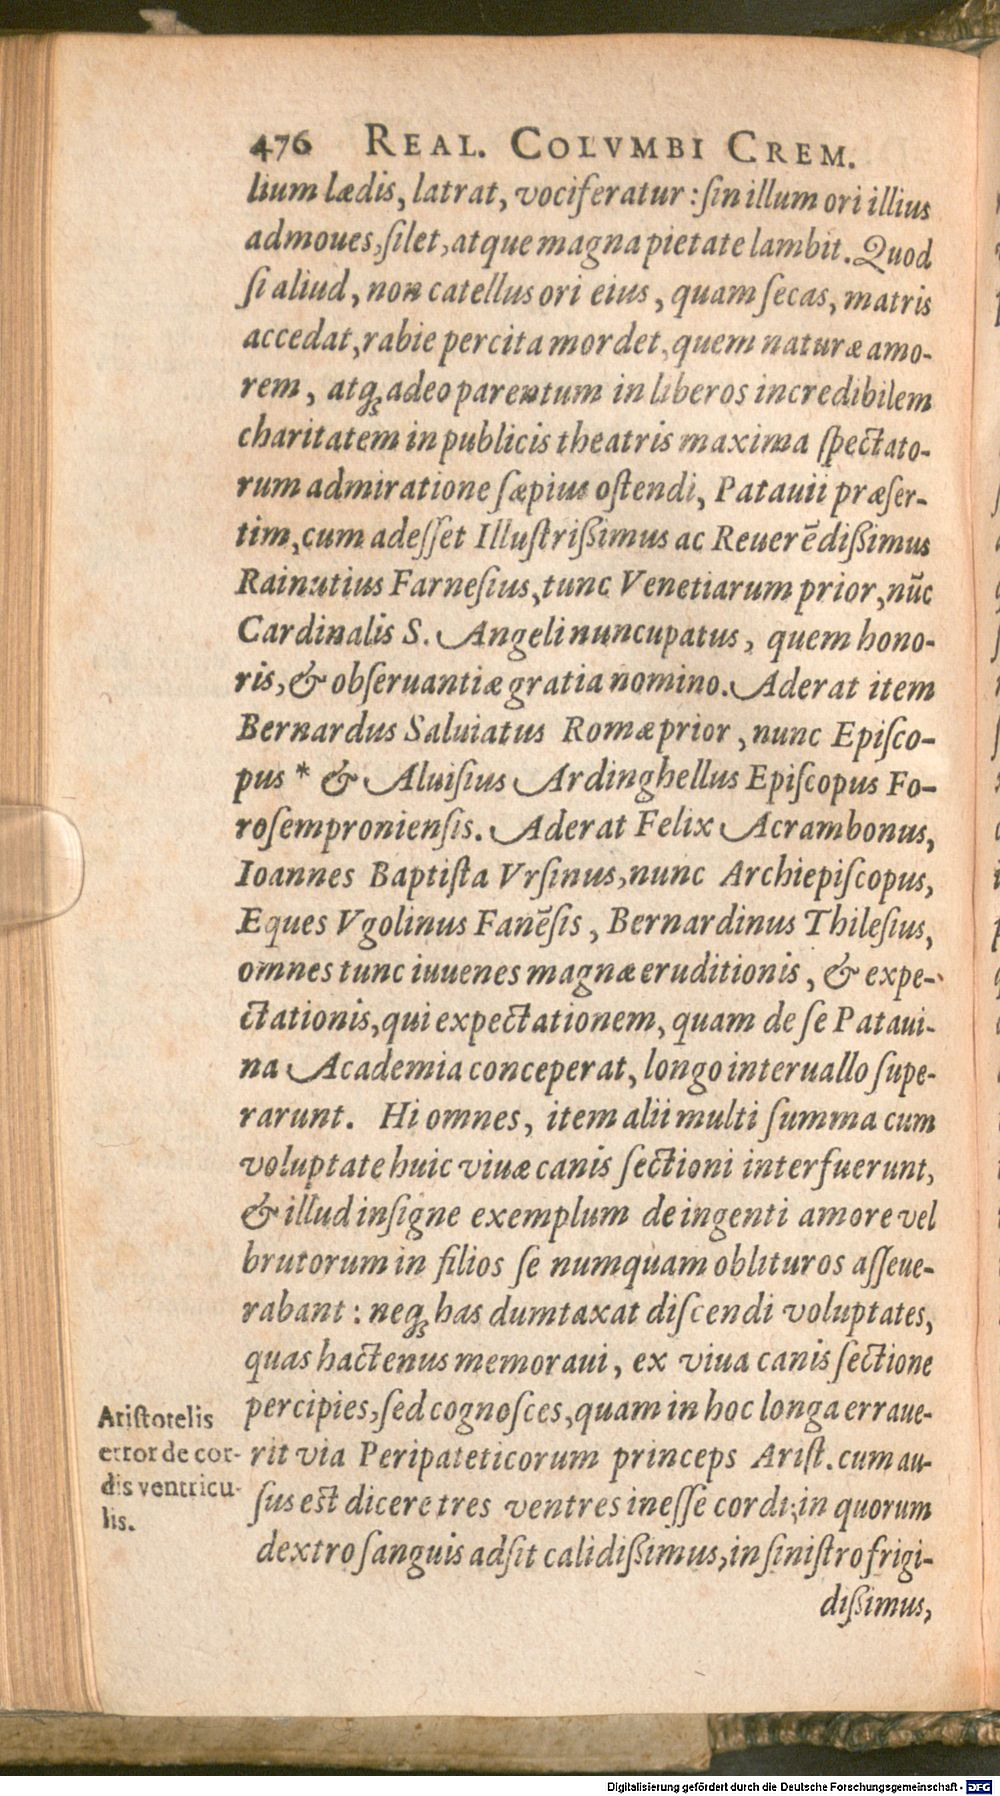 476 REAL. COLVMBI CREM.
lium lædis, latrat, vociferatur: ſin illum ori illius
admoues, ſilet, atque magna pietate lambit. Quod
ſi aliud, non catellus ori eius, quam ſecas, matris
accedat, rabie percita mordet, quem naturæ amo-
rem, atq; adeo parentum in liberos incredibilem
charitatem in publicis theatris maxima ſpectato-
rum admiratione ſæpius oſtendi, Patauii præſer-
tim, cum adeſſet Illuſtriſſimus ac Reuerēdiſſimus
Rainutius Farneſius, tunc Venetiarum prior, nūc
Cardinalis S. Angeli nuncupatus, quem hono-
ris, & obſeruantiæ gratia nomino. Aderat item
Bernardus Saluiatus Romæ prior, nunc Epiſco-
pus * & Aluiſius Ardinghellus Epiſcopus Fo-
roſempronienſis. Aderat Felix Acrambonus,
Ioannes Baptiſta Vrſinus, nunc Archiepiſcopus,
Eques Vgolinus Fanēſis, Bernardinus Thileſius,
omnes tunc iuuenes magnæ eruditionis, & expe-
ctationis, qui expectationem, quam de ſe Pataui-
na Academia conceperat, longo interuallo ſupe-
rarunt. Hi omnes, item alii multi ſumma cum
voluptate huic viuæ canis ſectioni interfuerunt,
& illud inſigne exemplum de ingenti amore vel
brutorum in filios ſe numquam oblituros aſſeue-
rabant: neq; has dumtaxat diſcendi voluptates,
quas hactenus memoraui, ex viua canis ſectione
percipies, ſed cognoſces, quam in hoc longa erraue-
rit via Peripateticorum princeps Ariſt. cum au-
ſus eſt dicere tres ventres ineſſe cordi; in quorum
dextro ſanguis adſit calidiſſimus, in ſiniſtro frigi-
diſſimus,
Ariſtotelis
error de cor-
dis ventricu-
lis.
Digitalisierung gefördert durch die Deutsche Forschungsgemeinschaft - DFG